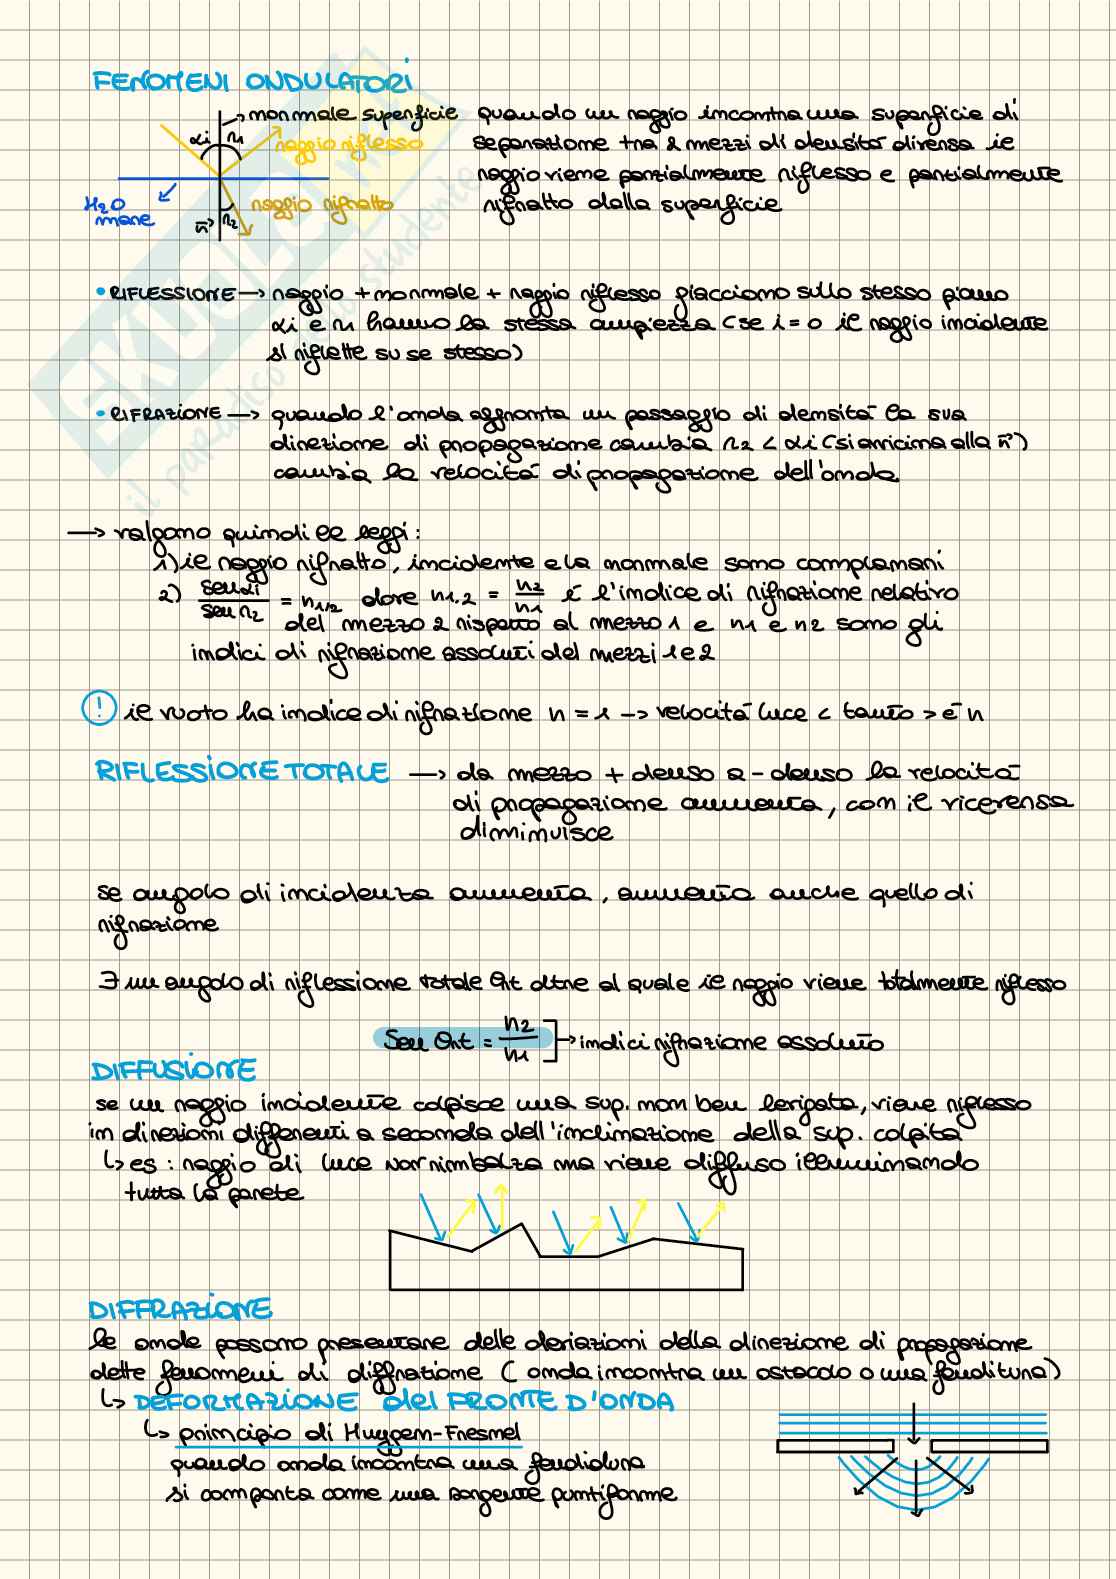 FENOMENI ONDULATORI
normale superficie
αi
r1
raggio riflesso
H2O
mare
n→
r2
raggio rifratto
quando un raggio incontra una superficie di
separazione tra 2 mezzi di densità diversa il
raggio viene parzialmente riflesso e parzialmente
rifratto dalla superficie
• RIFLESSIONE → raggio + normale + raggio riflesso giacciono sullo stesso piano
αi e r1 hanno la stessa ampiezza (se i = 0 il raggio incidente
si riflette su se stesso)
• RIFRAZIONE → quando l'onda affronta un passaggio di densità la sua
direzione di propagazione cambia r2 < αi (si avvicina alla n→)
cambia la velocità di propagazione dell'onda
→ valgono quindi le leggi:
1) il raggio rifratto, incidente e la normale sono complanari
2) sen αi / sen r2 = n1,2 dove n1,2 = n2 / n1 è l'indice di rifrazione relativo
del mezzo 2 rispetto al mezzo 1 e n1 e n2 sono gli
indici di rifrazione assoluti dei mezzi 1 e 2
! il vuoto ha indice di rifrazione n = 1 → velocità luce < tanto > è n
RIFLESSIONE TOTALE → da mezzo + denso a - denso la velocità
di propagazione aumenta, con il viceversa
diminuisce
se angolo di incidenza aumenta, aumenta anche quello di
rifrazione
∃ un angolo di riflessione totale θrt oltre al quale il raggio viene totalmente riflesso
Sen θrt = n2 / n1 ] → indici rifrazione assoluto
DIFFUSIONE
se un raggio incidente colpisce una sup. non ben levigata, viene riflesso
in direzioni differenti a seconda dell'inclinazione della sup. colpita
↳ es: raggio di luce non rimbalza ma viene diffuso illuminando
tutta la parete
DIFFRAZIONE
le onde possono presentare delle deviazioni della direzione di propagazione
dette fenomeni di diffrazione (onda incontra un ostacolo o una fenditura)
↳ DEFORMAZIONE del FRONTE D'ONDA
↳ principio di Huygem-Fresnel
quando onda incontra una fendidura
si comporta come una sorgente puntiforme